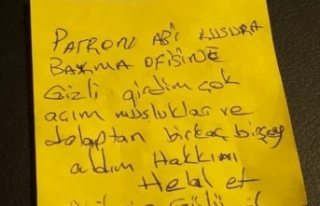 PATRON ABİ KUSURA
BAKMA OFİSİNE
Gizli girdim çok
açım musluklar ve
dolaptan birkaç bişey
aldım Hakkını
Helal et